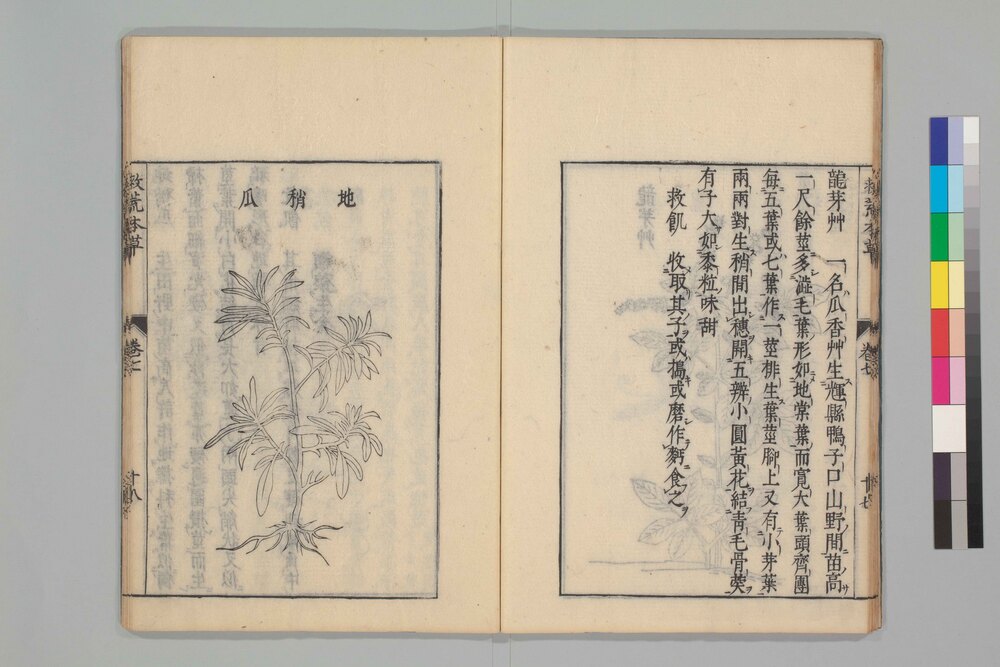 龍芽艸 一名瓜香艸生輝縣鴨子口山野間苗高
一尺餘莖多澁毛葉形如地棠葉而寬大葉頭齊團
每五葉或七葉作一莖排生葉莖脚上又有小芽葉
兩兩對生稍間出穗開五瓣小圓黃花結靑毛骨葖
有子大如黍粒味甜
救飢 收取其子或搗或磨作麪食之
救荒本草
卷七
廿七
地稍瓜
救荒本草
卷七
十八